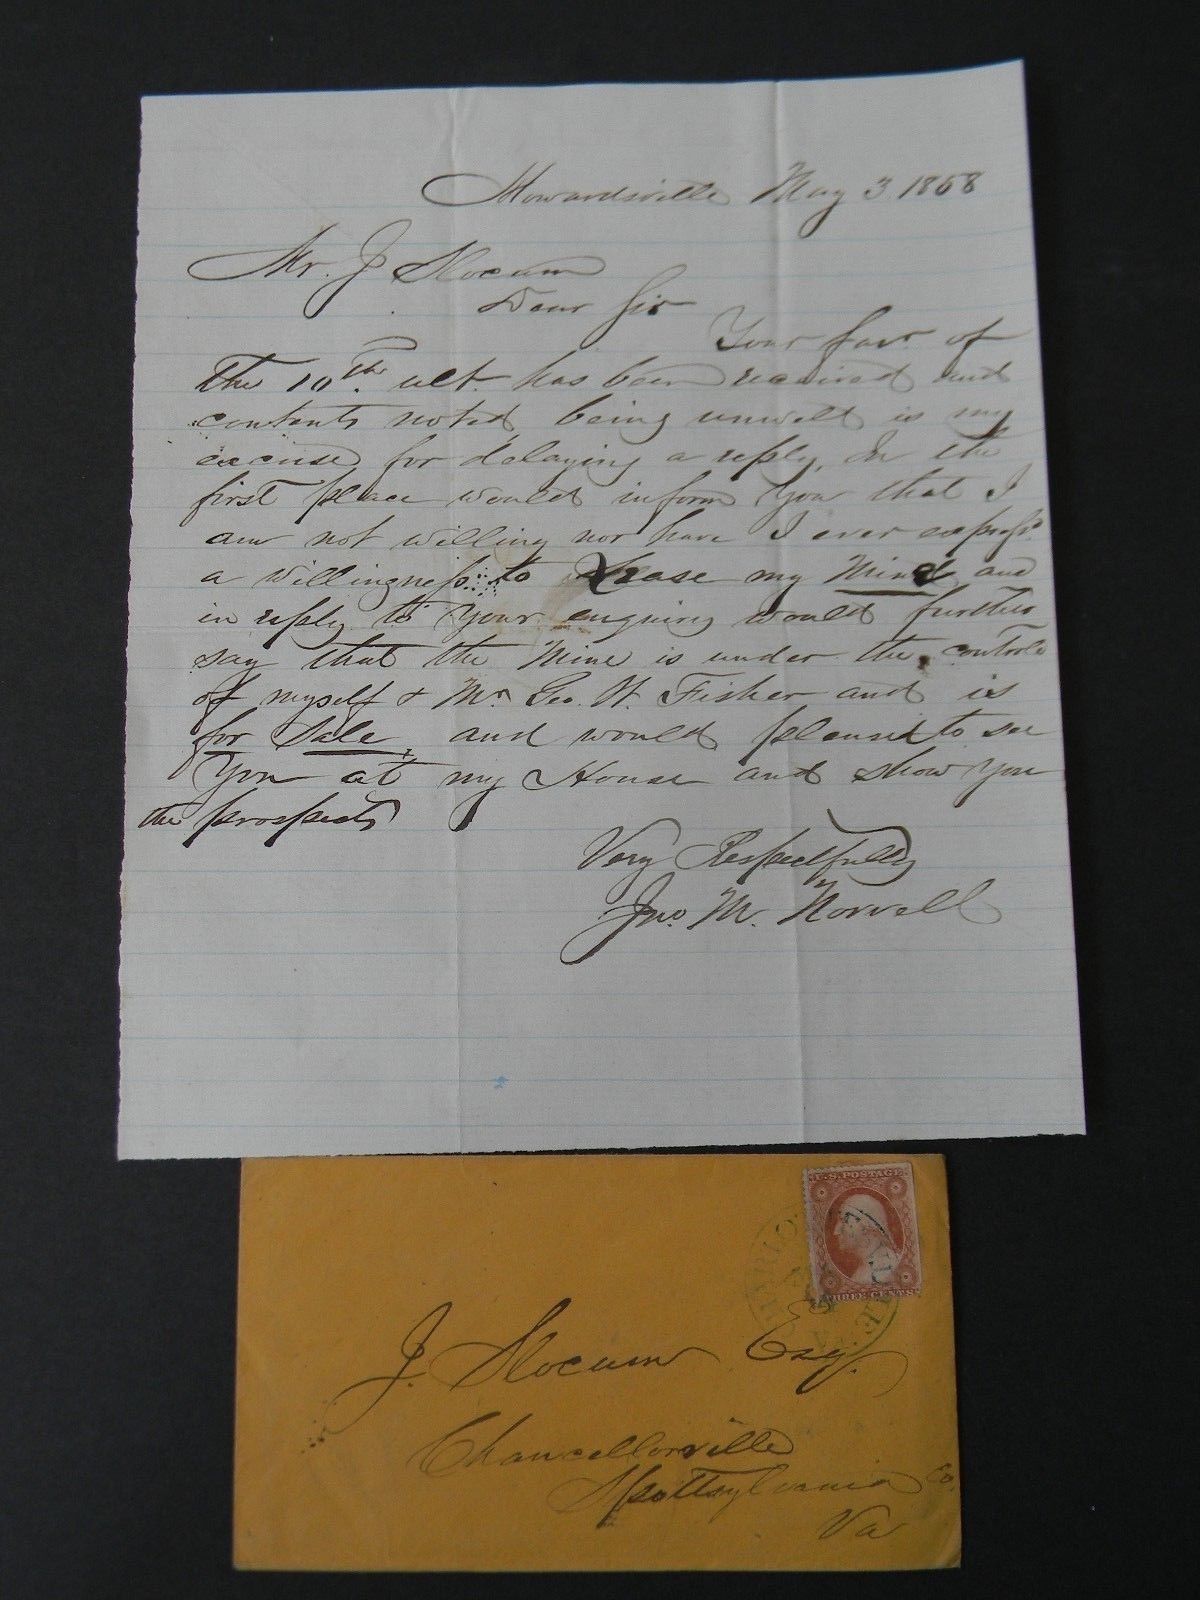 Howardsville May 3 1858
Mr. J Slocum
Dear Sir
Your favr. of
the 10th. ult. has been received and
contents noted, being unwell is my
excuse for delaying a reply, In the
first place would inform You that I
am not willing nor have I ever express.d
a willingness to Lease my Mine, and
in reply to Your enquiry would further
say that the Mine is under the controle
of myself & Mr Geo. W. Fisher and is
for Sale, and would pleased to see
You at my House and show You
the prospects
Very Respectfully
Jno. M. Norvell
U.S. POSTAGE
THREE CENTS
J. Slocum Esq.
Chancellorville
Spottsylvania Co.
Va